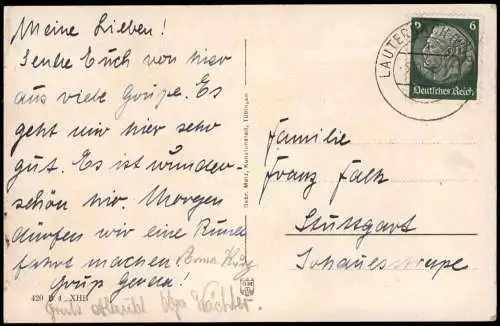 Meine Lieben!
Sende Euch von hier
aus viele Grüße. Es
geht mir hier sehr
gut. Es ist wunder-
schön hier Morgen
dürfen wir eine Rund
fahrt machen Anna
Gruß Gerda!
Gruß Olga
420 XHB
Gebr. Metz, Kunstanstalt, Tübingen
LAUTER
6
6
Deutsches Reich
Familie
Franz Falk
Stuttgart